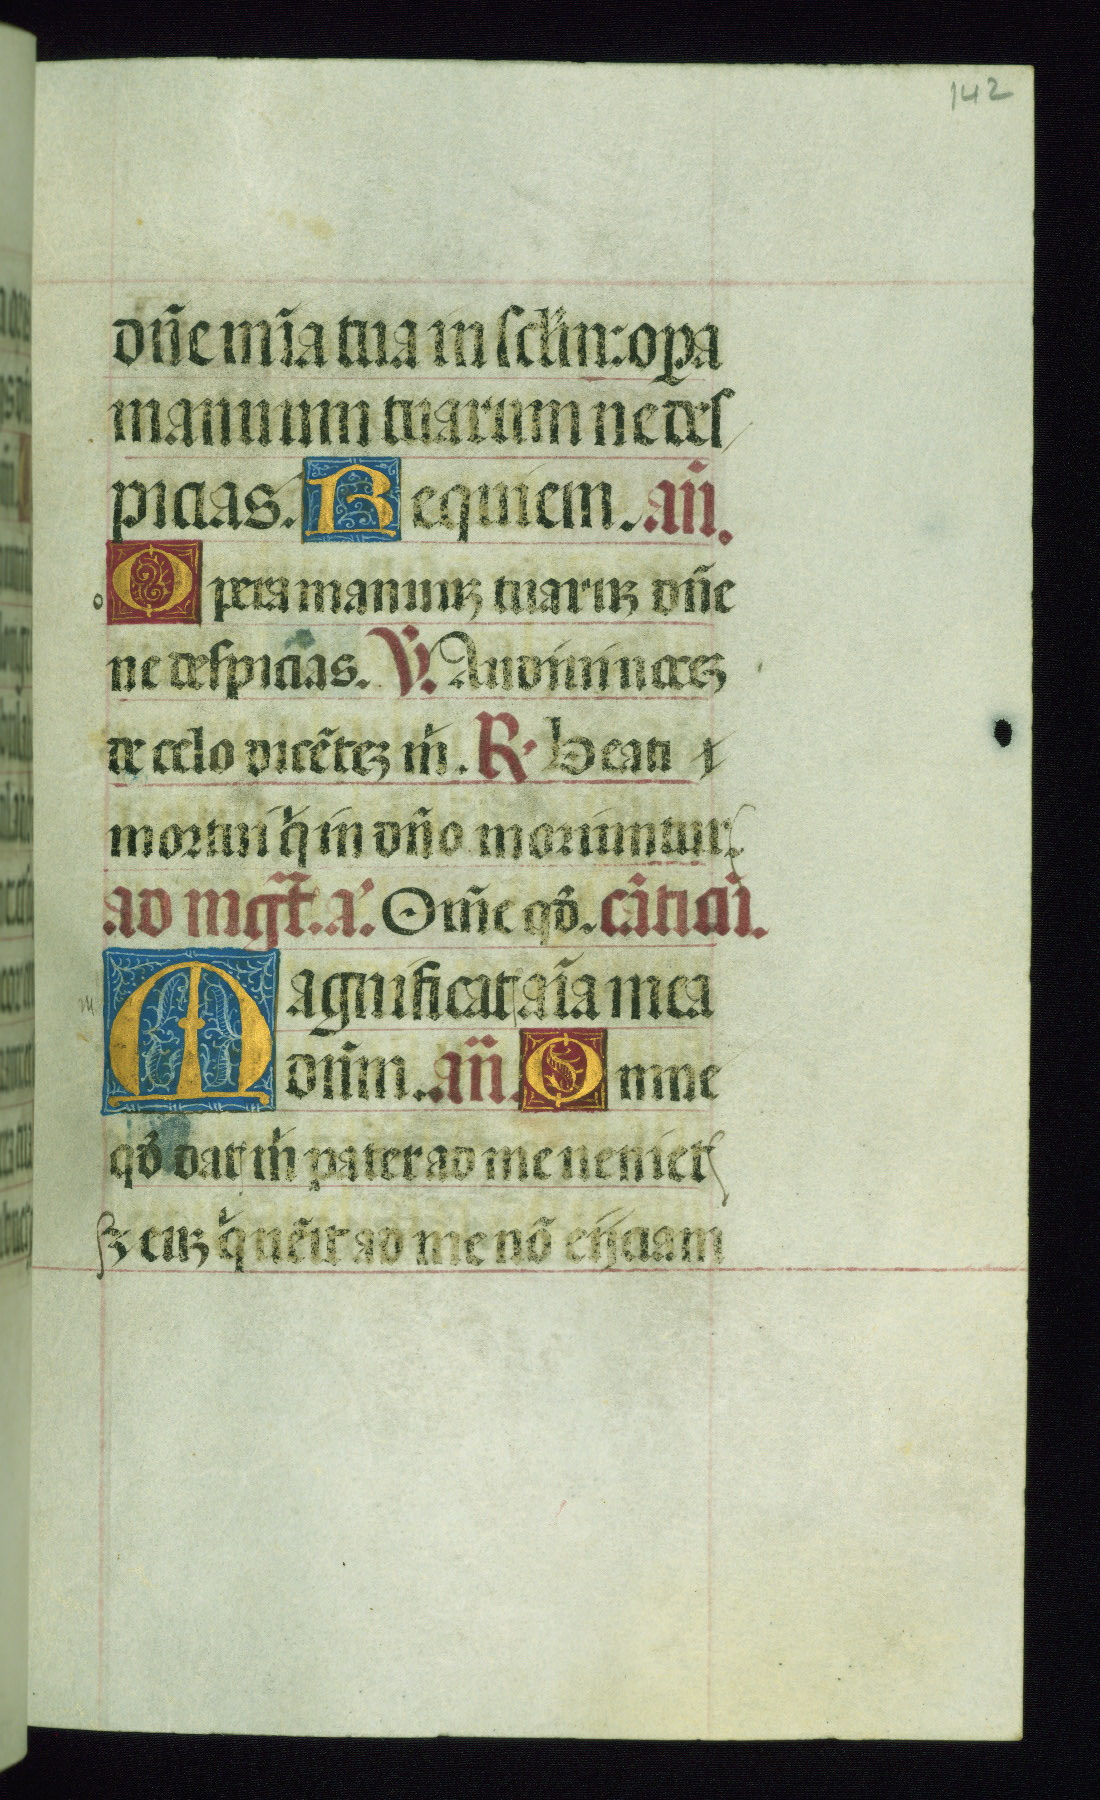 142
dn̄e mīa tua in sclm̄: oꝑa
manuum tuarum ne des
picias. Requiem. an̄.
o
Opera manuuꝫ tuaruꝫ dn̄e
ne despicias. V̄. Audiui uoceꝫ
de celo dicēteꝫ m̄. R. beati
mortui q̄ in dn̄o moriuntur
ad mgt̄. a. Om̄e qđ. cāticū.
m
Magnificat aīa mea
dn̄m. an̄. Omne
qđ dat m̄ pater ad me ueniet
ꝫ euꝫ q̄ uēit ad me nō eijciam